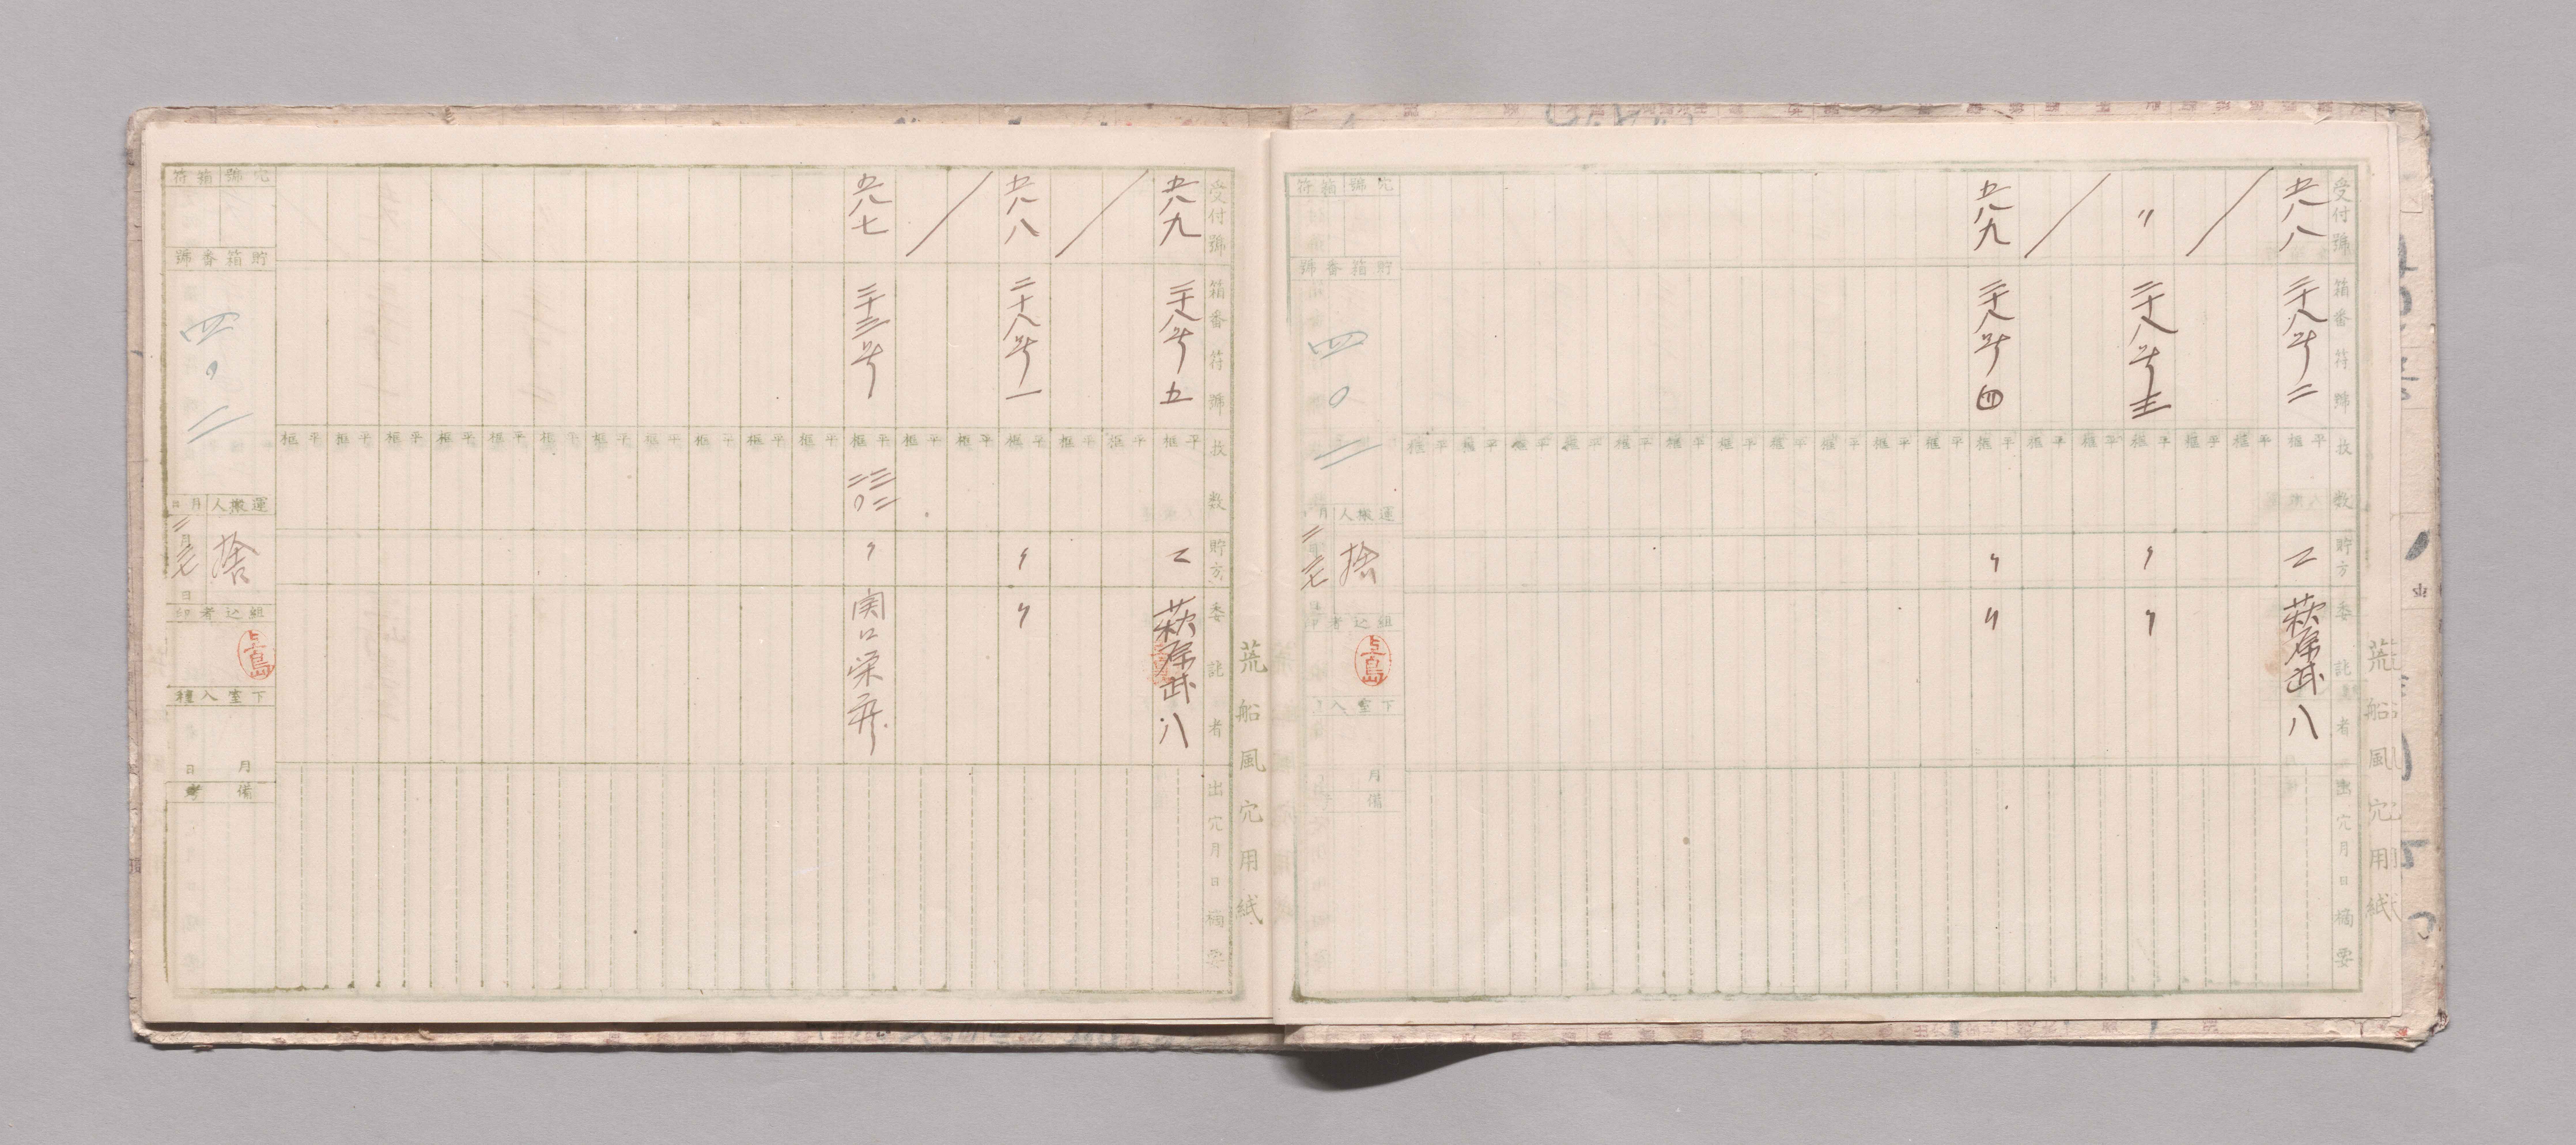 荒船風穴用紙
受付號
箱番符號
枚数
貯方
委託者
出穴月日摘要
五八八 二十八号二 二 萩原武八
〃 二十八号三 〃 〃
五八九 二十八号四 〃 〃
平框
穴號箱符
貯箱番號
四〇二
運搬人 月
捨 二 二七
組込者印
上島
下室入
月
備
荒船風穴用紙
受付號
箱番符號
枚数
貯方
委託者
出穴月日摘要
五八九 二十八号五 二 萩原武八
五八八 二十八号一 〃 〃
五八七 二十三号 〃 関口栄
平框
穴號箱符
貯箱番號
四〇二
運搬人 月日
捨 二月二七日
組込者印
上島
下室入種
月日
備考